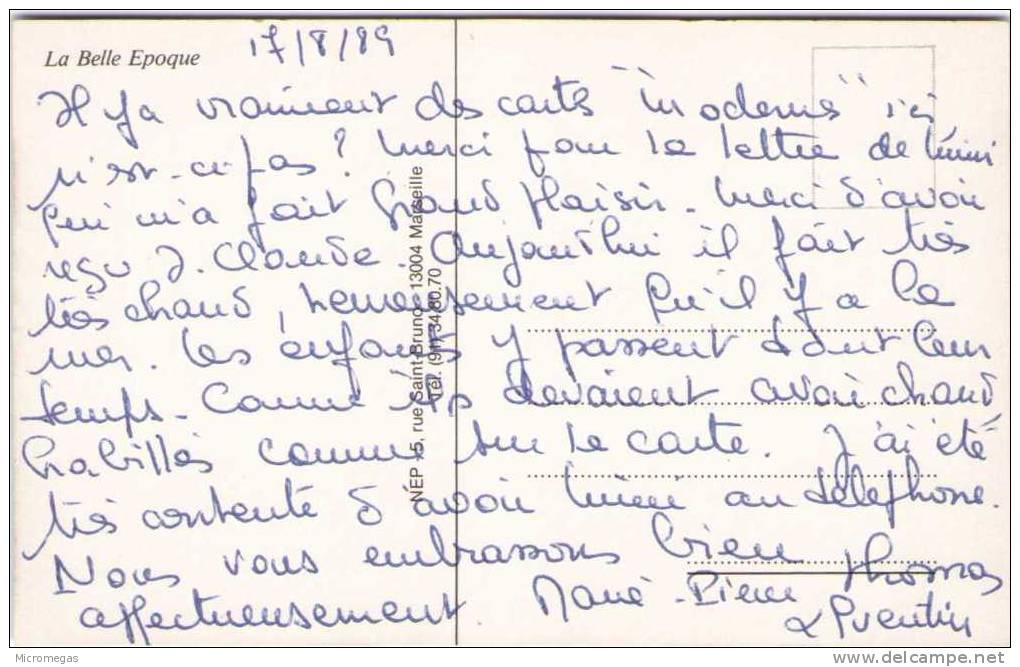 La Belle Epoque
17/8/89
Il y a vraiment des cartes "modernes" ici
n'est-ce pas ? Merci pour la lettre de Mimi
qui m'a fait grand plaisir. Merci d'avoir
reçu J. Claude. Aujourd'hui il fait très
très chaud, heureusement qu'il y a la
mer. Les enfants y passent tout leur
temps. Comme ils devaient avoir chaud
habillés comme sur la carte. J'ai été
très contente d'avoir Mimi au téléphone.
Nous vous embrassons bien
affectueusement Marie-Pierre Thomas
& Quentin
NEP 15, rue Saint-Bruno - 13004 Marseille
Tél. (91) 34.80.70
Micromegas
delcampe.net